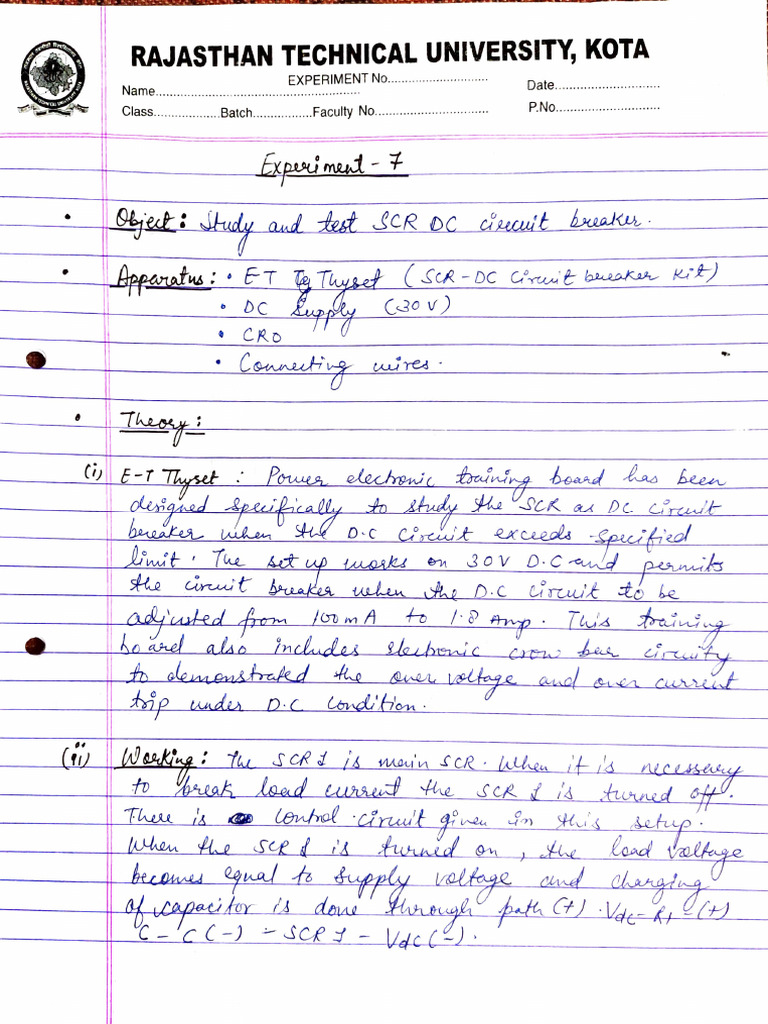 RAJASTHAN TECHNICAL UNIVERSITY, KOTA
EXPERIMENT No............................
Name.......................................................... Date..............................
Class...................Batch.................Faculty No................................ P.No.............................
Experiment - 7
• Object : Study and test SCR DC circuit breaker.
• Apparatus : • E-T Thyset (SCR-DC Circuit breaker Kit)
• DC Supply (30V)
• CRO
• Connecting wires.
• Theory :
(i) E-T Thyset : Power electronic training board has been
designed specifically to study the SCR as DC Circuit
breaker when the D.C Circuit exceeds specified
limit. The set up works on 30V D.C and permits
the circuit breaker when the D.C circuit to be
adjusted from 100mA to 1.8 Amp. This training
board also includes electronic crow bar circuity
to demonstrated the over voltage and over current
trip under D.C Condition.
(ii) Working : The SCR 1 is main SCR. When it is necessary
to break load current the SCR 1 is turned off.
There is control circuit given in this setup.
When the SCR 1 is turned on, the load voltage
becomes equal to supply voltage and charging
of capacitor is done through path (+) Vdc - R1 - (+)
C - C (-) - SCR 1 - Vdc (-).